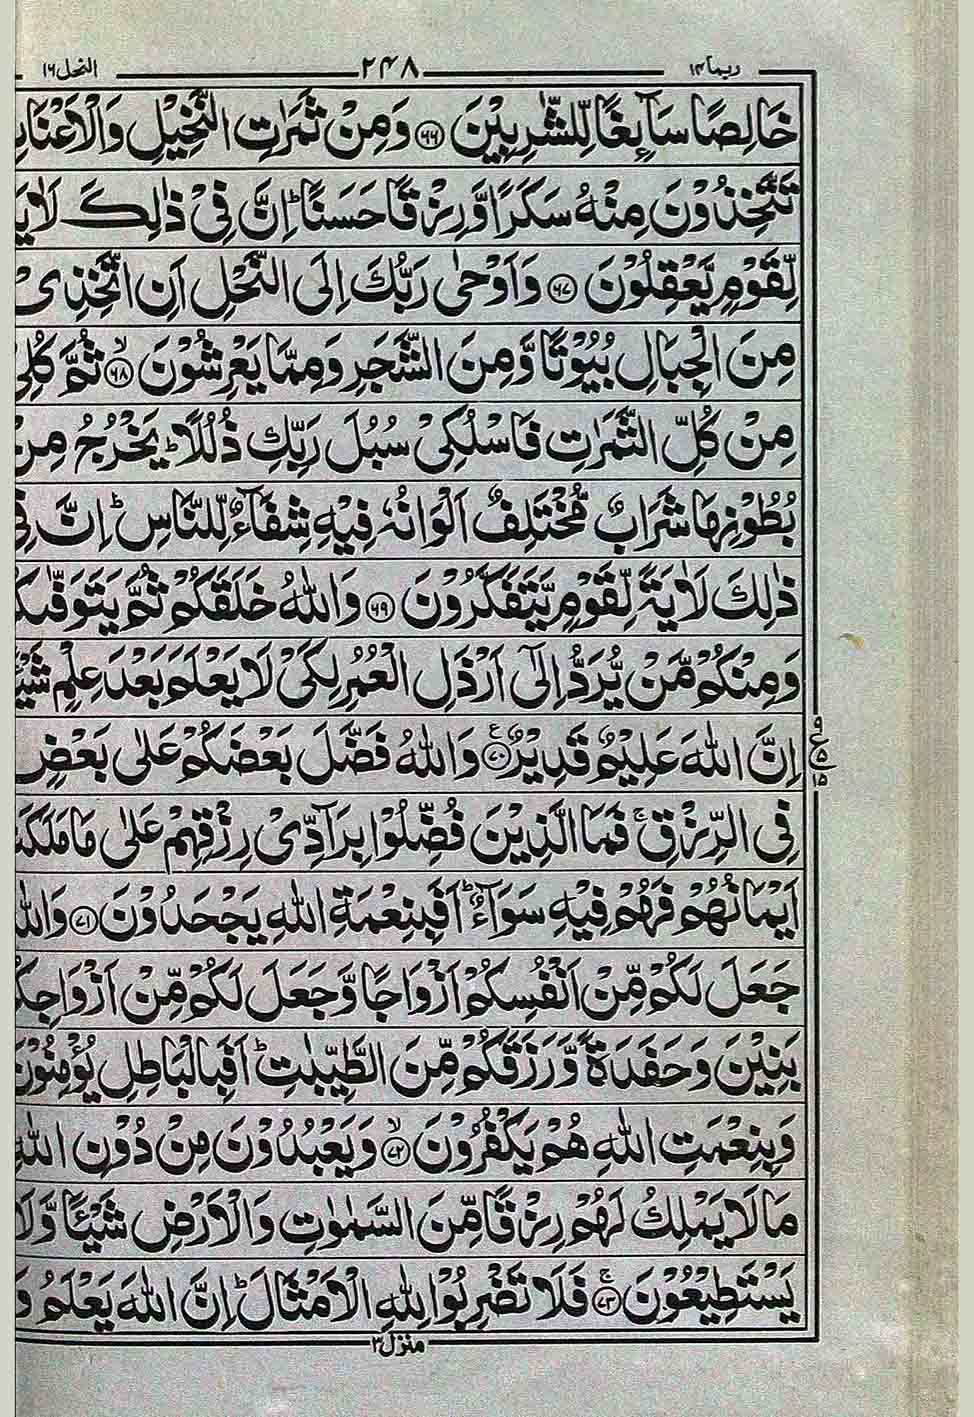 ربما ١٤ ٢٤٨ النحل ١٦
خَالِصًا سَآىِٕغًا لِّلشّٰرِبِیْنَ ۝۶۶ وَمِنْ ثَمَرٰتِ النَّخِیْلِ وَالْاَعْنَابِ
تَتَّخِذُوْنَ مِنْهُ سَكَرًا وَّرِزْقًا حَسَنًا ؕ اِنَّ فِیْ ذٰلِكَ لَاٰیَ
لِّقَوْمٍ یَّعْقِلُوْنَ ۝۶۷ وَاَوْحٰی رَبُّكَ اِلَی النَّحْلِ اَنِ اتَّخِذِیْ
مِنَ الْجِبَالِ بُیُوْتًا وَّمِنَ الشَّجَرِ وَمِمَّا یَعْرِشُوْنَ ۝۶۸ۙ ثُمَّ كُلِیْ
مِنْ كُلِّ الثَّمَرٰتِ فَاسْلُكِیْ سُبُلَ رَبِّكِ ذُلُلًا ؕ یَخْرُجُ مِنْ
بُطُوْنِهَا شَرَابٌ مُّخْتَلِفٌ اَلْوَانُهٗ فِیْهِ شِفَآءٌ لِّلنَّاسِ ؕ اِنَّ فِیْ
ذٰلِكَ لَاٰیَةً لِّقَوْمٍ یَّتَفَكَّرُوْنَ ۝۶۹ وَاللّٰهُ خَلَقَكُمْ ثُمَّ یَتَوَفّٰىكُ
وَمِنْكُمْ مَّنْ یُّرَدُّ اِلٰۤی اَرْذَلِ الْعُمُرِ لِكَیْ لَا یَعْلَمَ بَعْدَ عِلْمٍ شَیْـًٔ
اِنَّ اللّٰهَ عَلِیْمٌ قَدِیْرٌ ۝۷۰ۧ وَاللّٰهُ فَضَّلَ بَعْضَكُمْ عَلٰی بَعْضٍ
۹ ع ۵ ۱۵
فِی الرِّزْقِ ۚ فَمَا الَّذِیْنَ فُضِّلُوْا بِرَآدِّیْ رِزْقِهِمْ عَلٰی مَا مَلَكَتْ
اَیْمَانُهُمْ فَهُمْ فِیْهِ سَوَآءٌ ؕ اَفَبِنِعْمَةِ اللّٰهِ یَجْحَدُوْنَ ۝۷۱ وَاللّٰ
جَعَلَ لَكُمْ مِّنْ اَنْفُسِكُمْ اَزْوَاجًا وَّجَعَلَ لَكُمْ مِّنْ اَزْوَاجِكُ
بَنِیْنَ وَحَفَدَةً وَّرَزَقَكُمْ مِّنَ الطَّیِّبٰتِ ؕ اَفَبِالْبَاطِلِ یُؤْمِنُوْنَ
وَبِنِعْمَتِ اللّٰهِ هُمْ یَكْفُرُوْنَ ۝۷۲ۙ وَیَعْبُدُوْنَ مِنْ دُوْنِ اللّٰهِ
مَا لَا یَمْلِكُ لَهُمْ رِزْقًا مِّنَ السَّمٰوٰتِ وَالْاَرْضِ شَیْـًٔا وَّلَا
یَسْتَطِیْعُوْنَ ۝۷۳ۚ فَلَا تَضْرِبُوْا لِلّٰهِ الْاَمْثَالَ ؕ اِنَّ اللّٰهَ یَعْلَمُ وَ
منزل ٣